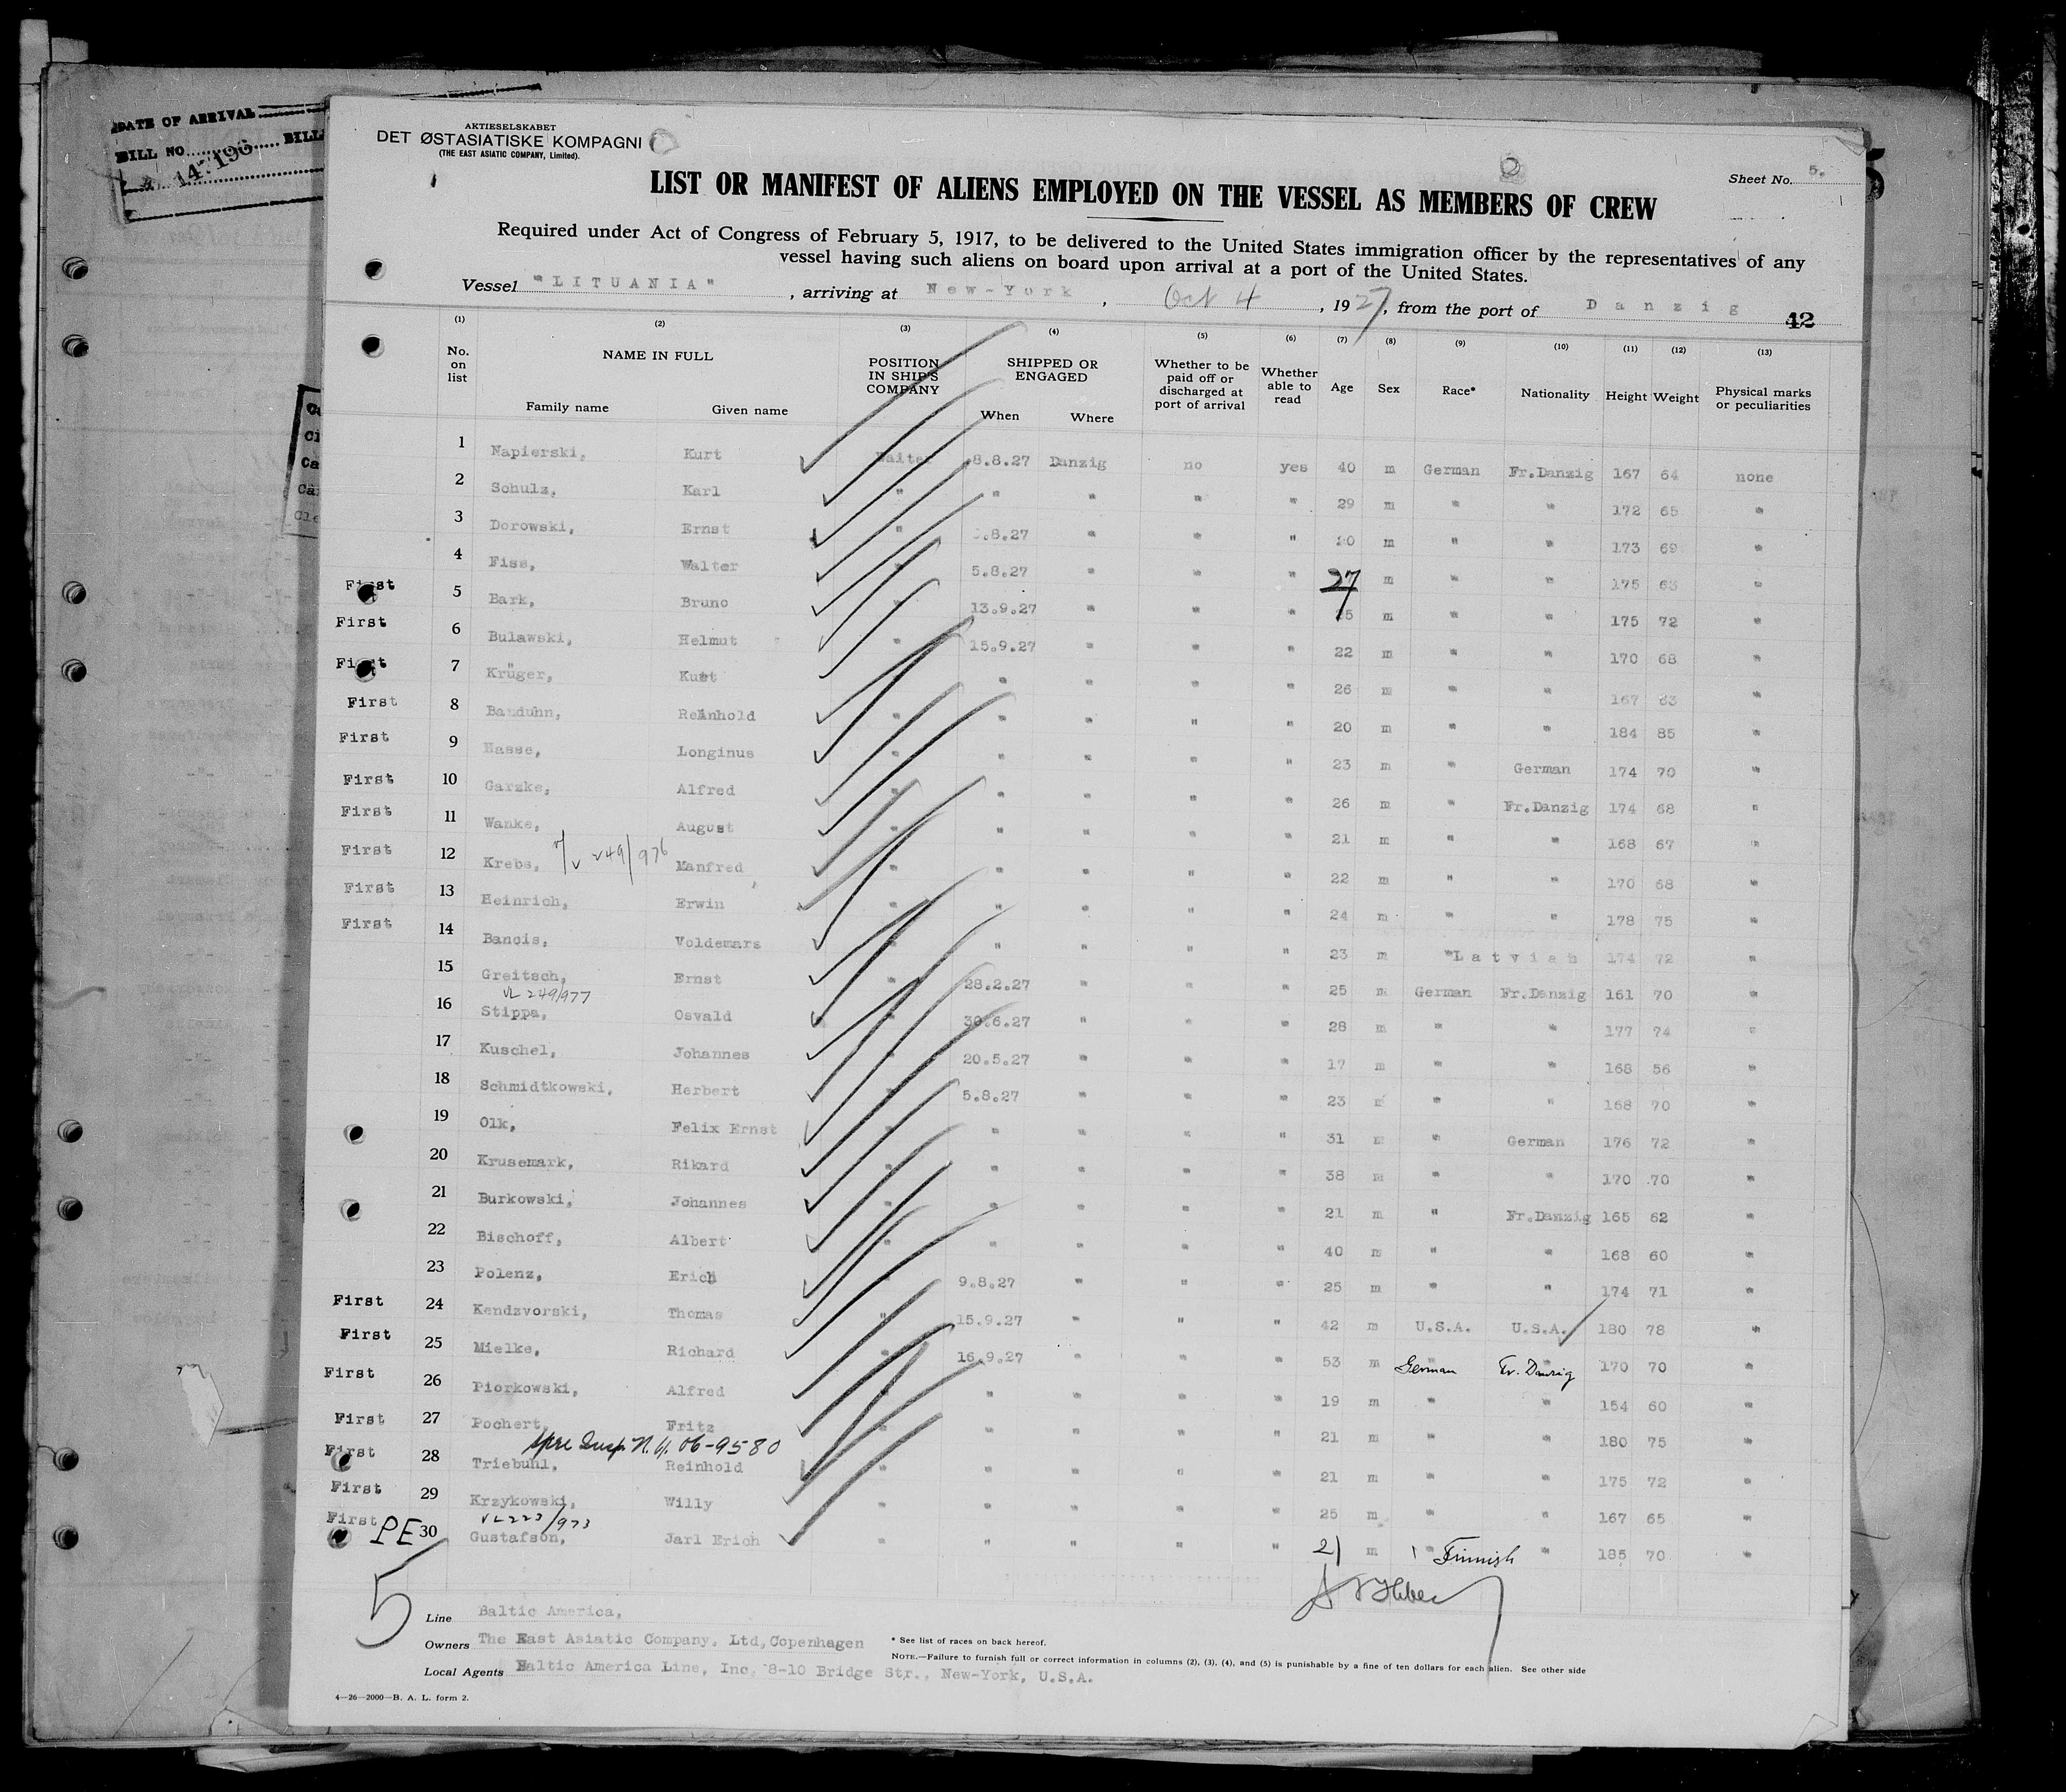 DATE OF ARRIVAL
BILL NO. BILL
AKTIESELSKABET
DET ØSTASIATISKE KOMPAGNI
(THE EAST ASIATIC COMPANY, Limited).
Sheet No. 5.
LIST OR MANIFEST OF ALIENS EMPLOYED ON THE VESSEL AS MEMBERS OF CREW
Required under Act of Congress of February 5, 1917, to be delivered to the United States immigration officer by the representatives of any
vessel having such aliens on board upon arrival at a port of the United States.
Vessel "LITUANIA", arriving at New-York, Oct 4, 1927, from the port of Danzig
42
(1) (2) (3) (4) (5) (6) (7) (8) (9) (10) (11) (12) (13)
No. on list NAME IN FULL Family name Given name POSITION IN SHIP'S COMPANY SHIPPED OR ENGAGED When Where Whether to be paid off or discharged at port of arrival Whether able to read Age Sex Race* Nationality Height Weight Physical marks or peculiarities
1 Napierski, Kurt Waiter 8.8.27 Danzig no yes 40 m German Fr.Danzig 167 64 none
2 Schulz, Karl " " " " " 29 m " " 172 65 "
3 Dorowski, Ernst " .8.27 " " " 20 m " " 173 69 "
4 Fiss, Walter " 5.8.27 " " " 27 m " " 175 63 "
First 5 Bark, Bruno " 13.9.27 " " " 25 m " " 175 72 "
First 6 Bulawski, Helmut " 15.9.27 " " " 22 m " " 170 68 "
First 7 Krüger, Kurt " " " " " 26 m " " 167 63 "
First 8 Banduhn, Reinhold " " " " " 20 m " " 184 85 "
First 9 Hasse, Longinus " " " " " 23 m " German 174 70 "
First 10 Garzke, Alfred " " " " " 26 m " Fr.Danzig 174 68 "
First 11 Wanke, August " " " " " 21 m " " 168 67 "
First 12 Krebs, 249/976 Manfred " " " " " 22 m " " 170 68 "
First 13 Heinrich, Erwin " " " " " 24 m " " 178 75 "
First 14 Bancis, Voldemars " " " " " 23 m " Latvian 174 72 "
15 Greitsch, Ernst " 28.2.27 " " " 25 m German Fr.Danzig 161 70 "
VL 249/977
16 Stippa, Osvald " 30.6.27 " " " 28 m " " 177 74 "
17 Kuschel, Johannes " 20.5.27 " " " 17 m " " 168 56 "
18 Schmidtkowski, Herbert " 5.8.27 " " " 23 m " " 168 70 "
19 Olk, Felix Ernst " " " " " 31 m " German 176 72 "
20 Krusemark, Rikard " " " " " 38 m " " 170 70 "
21 Burkowski, Johannes " " " " " 21 m " Fr.Danzig 165 62 "
22 Bischoff, Albert " " " " " 40 m " " 168 60 "
23 Polenz, Erich " 9.8.27 " " " 25 m " " 174 71 "
First 24 Kendzvorski, Thomas " 15.9.27 " " " 42 m U.S.A. U.S.A. 180 78 "
First 25 Mielke, Richard " 16.9.27 " " " 53 m German Fr. Danzig 170 70 "
First 26 Piorkowski, Alfred " " " " " 19 m " " 154 60 "
First 27 Pochert, Fritz " " " " " 21 m " " 180 75 "
Insp. N.Y. 06-9580
First 28 Triebuhl, Reinhold " " " " " 21 m " " 175 72 "
First 29 Krzykowski, Willy " " " " " 25 m " " 167 65 "
VL 223/973
First PE 30 Gustafson, Jarl Erich " " " " " 21 m " Finnish " 185 70 "
5
Line Baltic America,
Owners The East Asiatic Company, Ltd, Copenhagen
* See list of races on back hereof.
NOTE.—Failure to furnish full or correct information in columns (2), (3), (4), and (5) is punishable by a fine of ten dollars for each alien. See other side
Local Agents Baltic America Line, Inc, 8-10 Bridge Str., New-York, U.S.A.
4—26—2000—B. A. L. form 2.